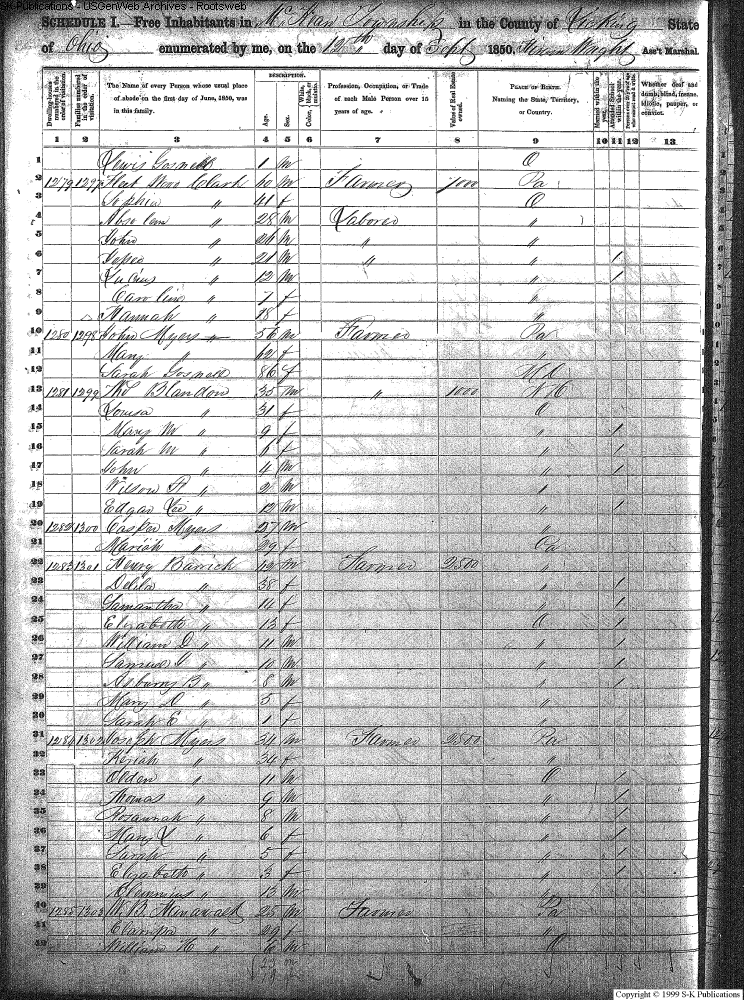 S-K Publications - USGenWeb Archives - Rootsweb
SCHEDULE I.—Free Inhabitants in McKean Township in the County of Licking State
of Ohio enumerated by me, on the 12th day of Sept 1850. Hiram Ass't Marshal.
DESCRIPTION.
Dwelling-houses numbered in the order of visitation.
Families numbered in the order of visitation.
The Name of every Person whose usual place of abode on the first day of June, 1850, was in this family.
Age.
Sex.
White, black, or mulatto.
Color
Profession, Occupation, or Trade of each Male Person over 15 years of age.
Value of Real Estate owned.
PLACE OF BIRTH. Naming the State, Territory, or Country.
Married within the year.
Attended School within the year.
Persons over 20 y'rs of age who cannot read & write.
Whether deaf and dumb, blind, insane, idiotic, pauper, or convict.
1 2 3 4 5 6 7 8 9 10 11 12 13
1 Lewis Gosnell 1 m O
2 1279 1297 Clark 60 m Farmer 1000 Pa
3 Sophia " 41 f O
4 Absolem " 28 m Laborer "
5 John " 26 m " "
6 " 21 m " " 1
7 " 12 m " 1
8 Caroline " 7 f "
9 Hannah " 18 f "
10 1280 1298 John Myers 56 m Farmer Pa
11 Mary " 62 f "
12 Sarah Gosnell 86 f Md
13 1281 1299 Blandon 35 m " 1000 NH
14 Louisa " 31 f O
15 Mary M " 9 f " 1
16 Sarah M " 6 f " 1
17 John " 4 m " 1
18 Wilson " 2 m "
19 Edgar " 12 m " 1
20 1282 1300 Casper Myers 27 m "
21 Mariah " 29 f Pa
22 1283 1301 Henry Barrick 42 m Farmer 2500 "
23 Delila " 38 f " 1
24 Samantha " 14 f " 1
25 Elizabeth " 13 f O 1
26 William D " 11 m " 1
27 Samuel " 10 m " 1
28 Asbury B " 8 m " 1
29 Mary " 5 f "
30 Sarah E " 1 f "
31 1284 1302 Joseph Myers 34 m Farmer 2800 Pa
32 Keziah " 34 f "
33 Olden " 11 m O 1
34 Thomas " 9 m " 1
35 Rosannah " 8 m " 1
36 Mary " 6 f " 1
37 Sarah " 5 f " 1
38 Elizabeth " 3 f " 1
39 " 13 m "
40 1285 1303 W. B. 25 m Farmer Pa
41 " 29 f "
42 William H " m O
Copyright © 1999 S-K Publications